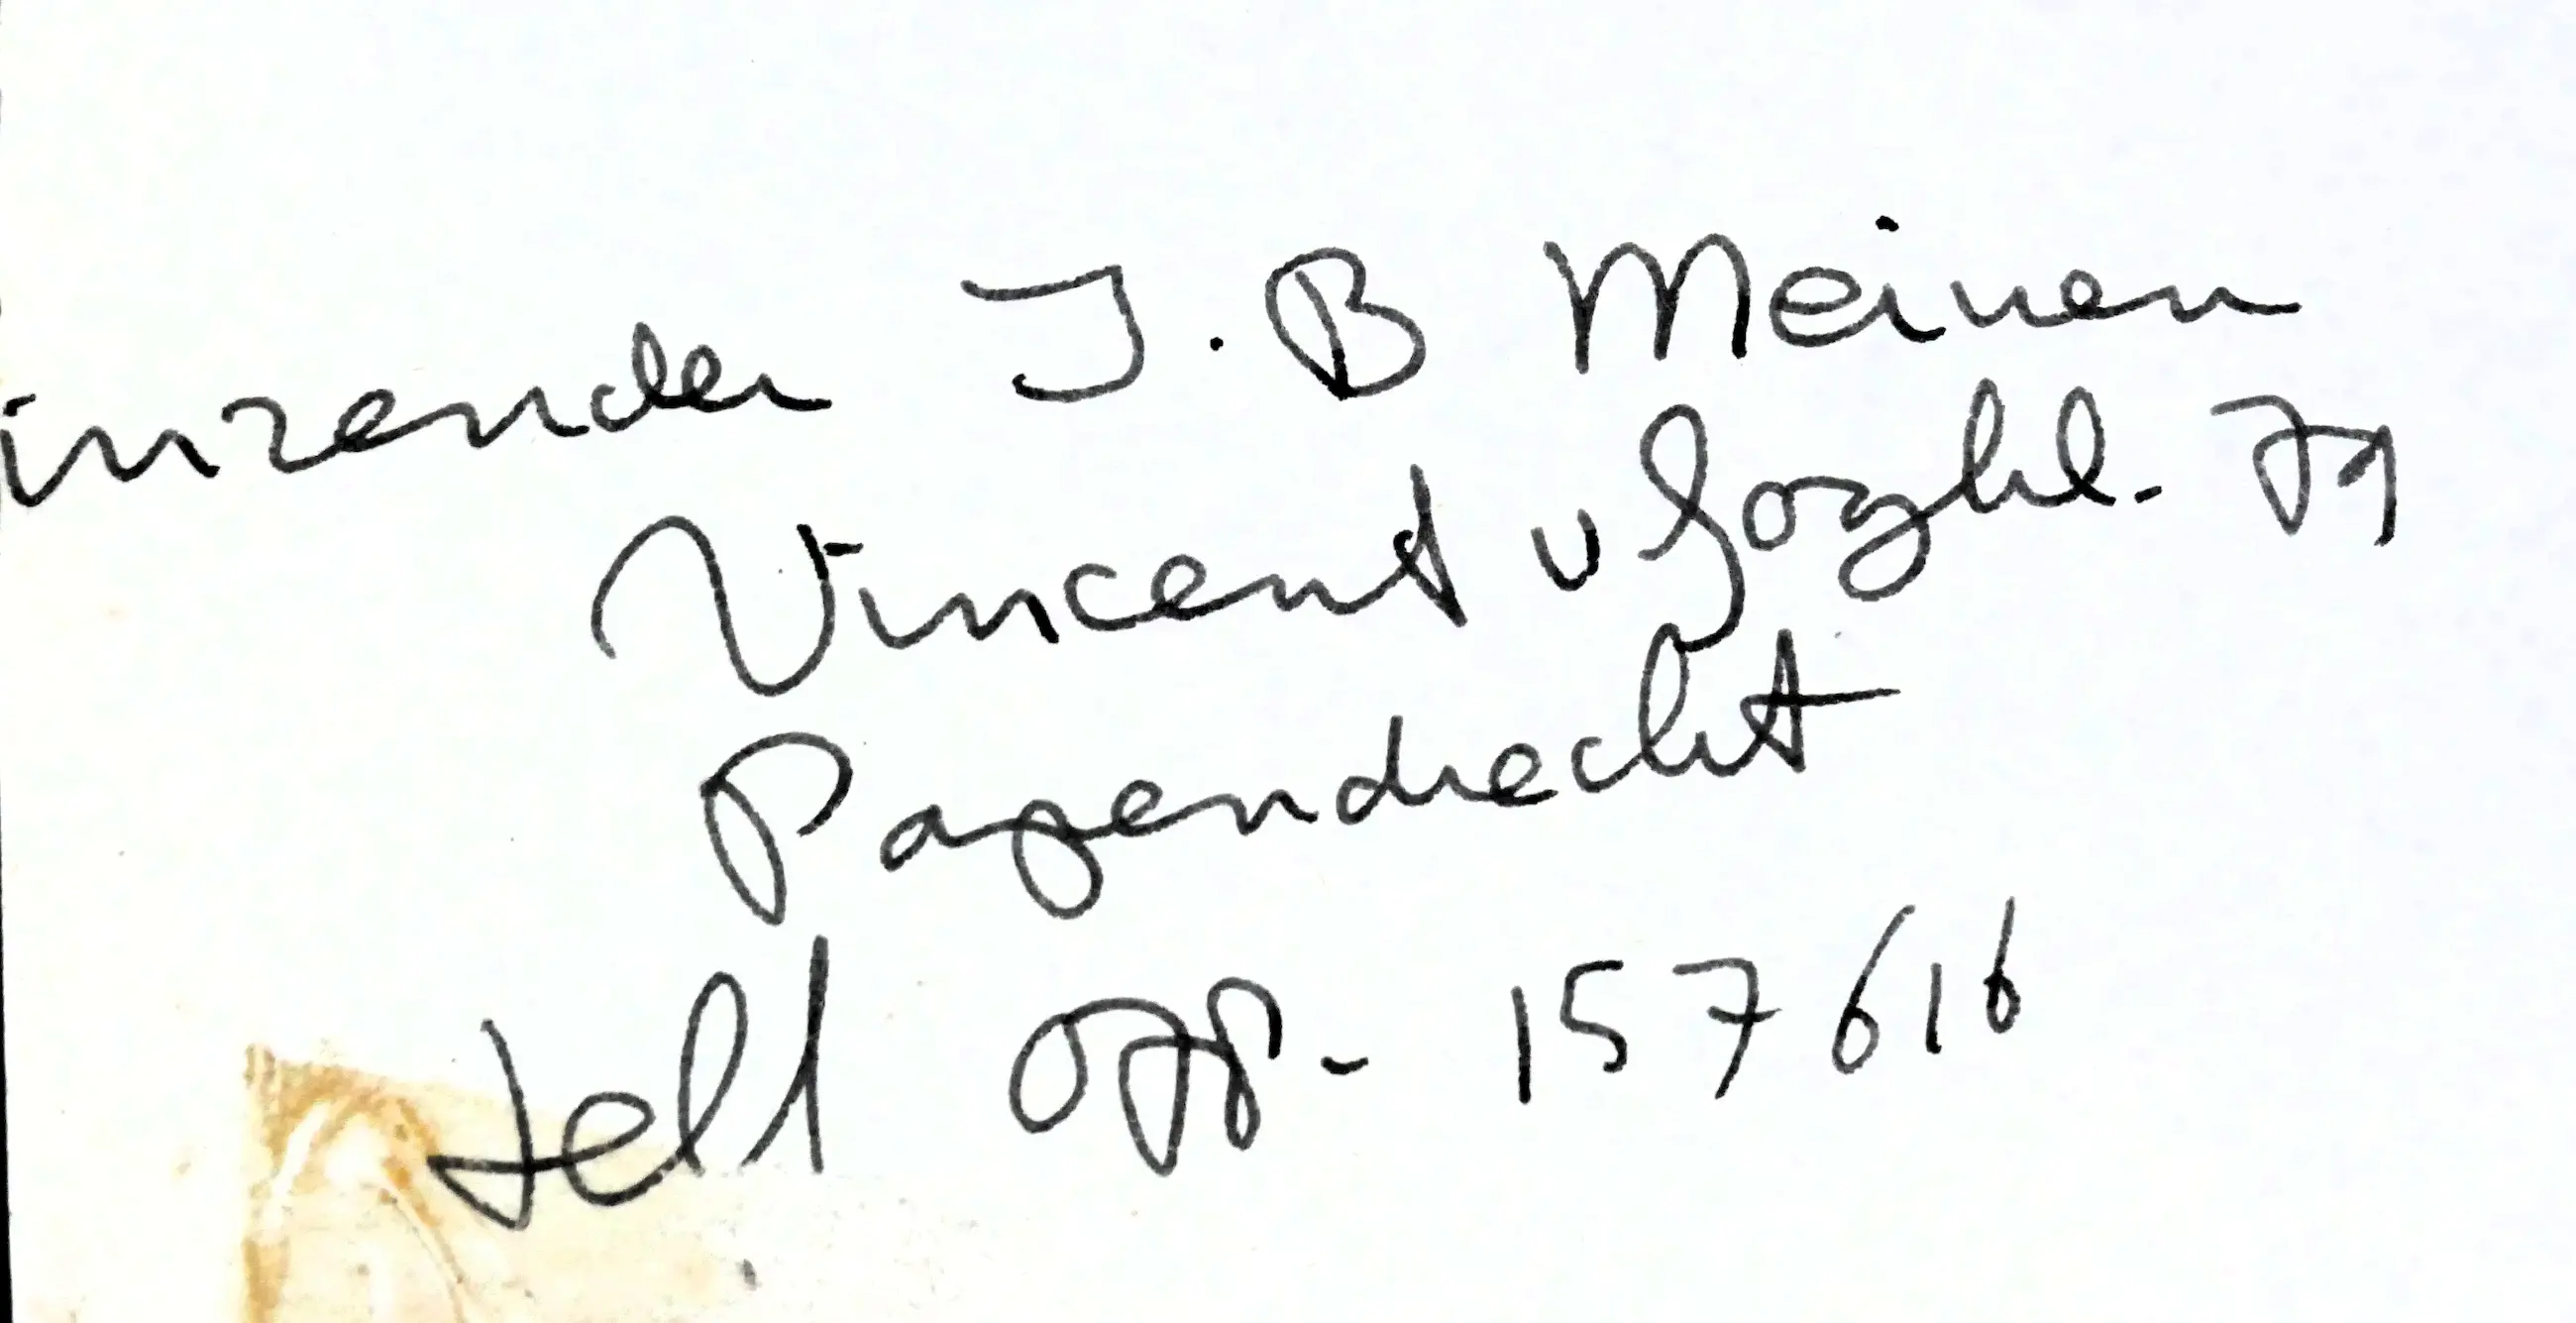 inzender J. B Meinen
Vincent v Goghl. 79
Papendrecht
tell opp. 157616